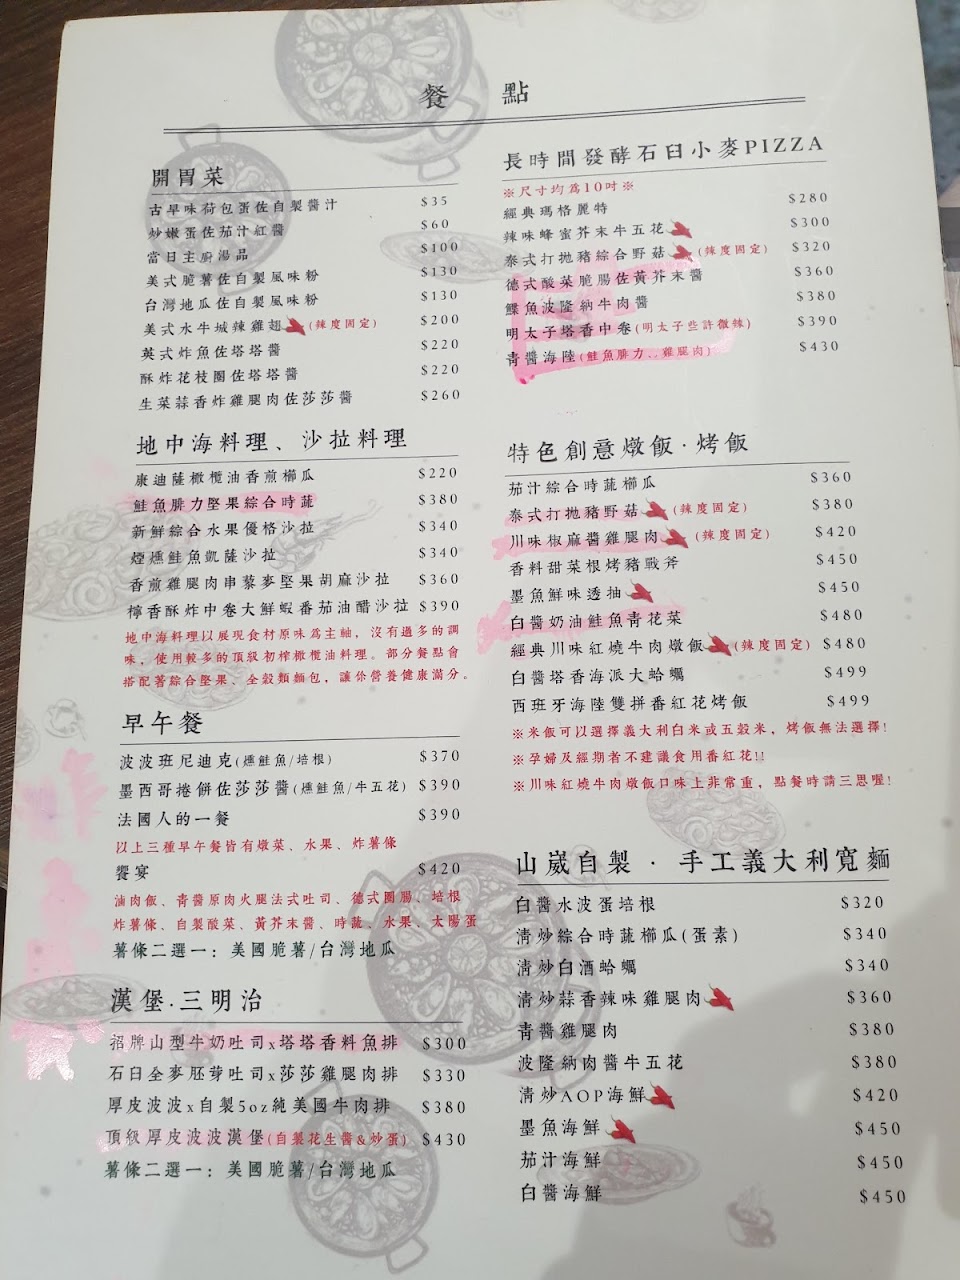 餐 點
開胃菜
古早味荷包蛋佐自製醬汁 $35
炒嫩蛋佐茄汁紅醬 $60
當日主廚湯品 $100
美式脆薯佐自製風味粉 $130
台灣地瓜佐自製風味粉 $130
美式水牛城辣雞翅(辣度固定) $200
英式炸魚佐塔塔醬 $220
酥炸花枝圈佐塔塔醬 $220
生菜蒜香炸雞腿肉佐莎莎醬 $260
地中海料理、沙拉料理
康迪薩橄欖油香煎櫛瓜 $220
鮭魚腓力堅果綜合時蔬 $380
新鮮綜合水果優格沙拉 $340
煙燻鮭魚凱薩沙拉 $340
香煎雞腿肉串藜麥堅果胡麻沙拉 $360
檸香酥炸中卷大鮮蝦番茄油醋沙拉 $390
地中海料理以展現食材原味為主軸，沒有過多的調
味，使用較多的頂級初榨橄欖油料理。部分餐點會
搭配著綜合堅果、全穀類麵包，讓你營養健康滿分。
早午餐
波波班尼迪克(燻鮭魚/培根) $370
墨西哥捲餅佐莎莎醬(燻鮭魚/牛五花) $390
法國人的一餐 $390
以上三種早午餐皆有燉菜、水果、炸薯條
饗宴 $420
滷肉飯、青醬原肉火腿法式吐司、德式圈腸、培根
炸薯條、自製酸菜、黃芥末醬、時蔬、水果、太陽蛋
薯條二選一：美國脆薯/台灣地瓜
漢堡·三明治
招牌山型牛奶吐司x塔塔香料魚排 $300
石臼全麥胚芽吐司x莎莎雞腿肉排 $330
厚皮波波x自製5oz純美國牛肉排 $380
頂級厚皮波波漢堡(自製花生醬&炒蛋) $430
薯條二選一：美國脆薯/台灣地瓜
長時間發酵石臼小麥PIZZA
※尺寸均為10吋※
經典瑪格麗特 $280
辣味蜂蜜芥末牛五花 $300
泰式打拋豬綜合野菇(辣度固定) $320
德式酸菜脆腸佐黃芥末醬 $360
鰈魚波隆納牛肉醬 $380
明太子塔香中卷(明太子些許微辣) $390
青醬海陸(鮭魚腓力、雞腿肉) $430
特色創意燉飯·烤飯
茄汁綜合時蔬櫛瓜 $360
泰式打拋豬野菇(辣度固定) $380
川味椒麻醬雞腿肉(辣度固定) $420
香料甜菜根烤豬戰斧 $450
墨魚鮮味透抽 $450
白醬奶油鮭魚青花菜 $480
經典川味紅燒牛肉燉飯(辣度固定) $480
白醬塔香海派大蛤蠣 $499
西班牙海陸雙拼番紅花烤飯 $499
※米飯可以選擇義大利白米或五穀米，烤飯無法選擇!
※孕婦及經期者不建議食用番紅花!!
※川味紅燒牛肉燉飯口味上非常重，點餐時請三思喔!
山崴自製·手工義大利寬麵
白醬水波蛋培根 $320
清炒綜合時蔬櫛瓜(蛋素) $340
清炒白酒蛤蠣 $340
清炒蒜香辣味雞腿肉 $360
青醬雞腿肉 $380
波隆納肉醬牛五花 $380
清炒AOP海鮮 $420
墨魚海鮮 $450
茄汁海鮮 $450
白醬海鮮 $450